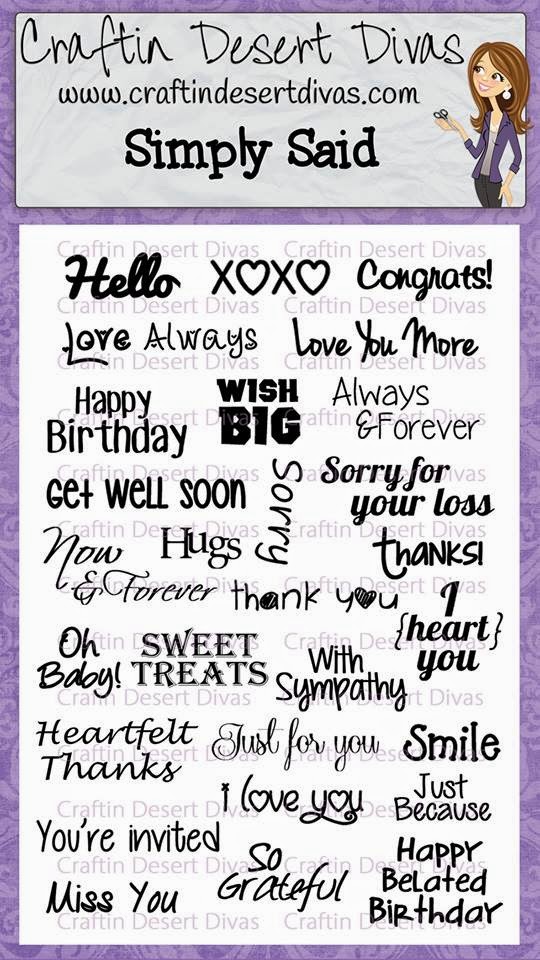 Craftin Desert Divas
www.craftindesertdivas.com
Simply Said
Craftin Desert Divas Craftin Desert Divas
Hello XO♡XO♡ Congrats!
Love Always Love You More
Happy
Birthday
WISH
BIG
Always
&Forever
Get Well Soon
Sorry
Sorry for
your loss
Now
& Forever
Hugs
thanks!
thank you
I
{heart}
you
Oh
Baby!
SWEET
TREATS
With
Sympathy
Heartfelt
Thanks
Just for you
Smile
i love you
Just
Because
You're invited
So
Grateful
Happy
Belated
Birthday
Miss You